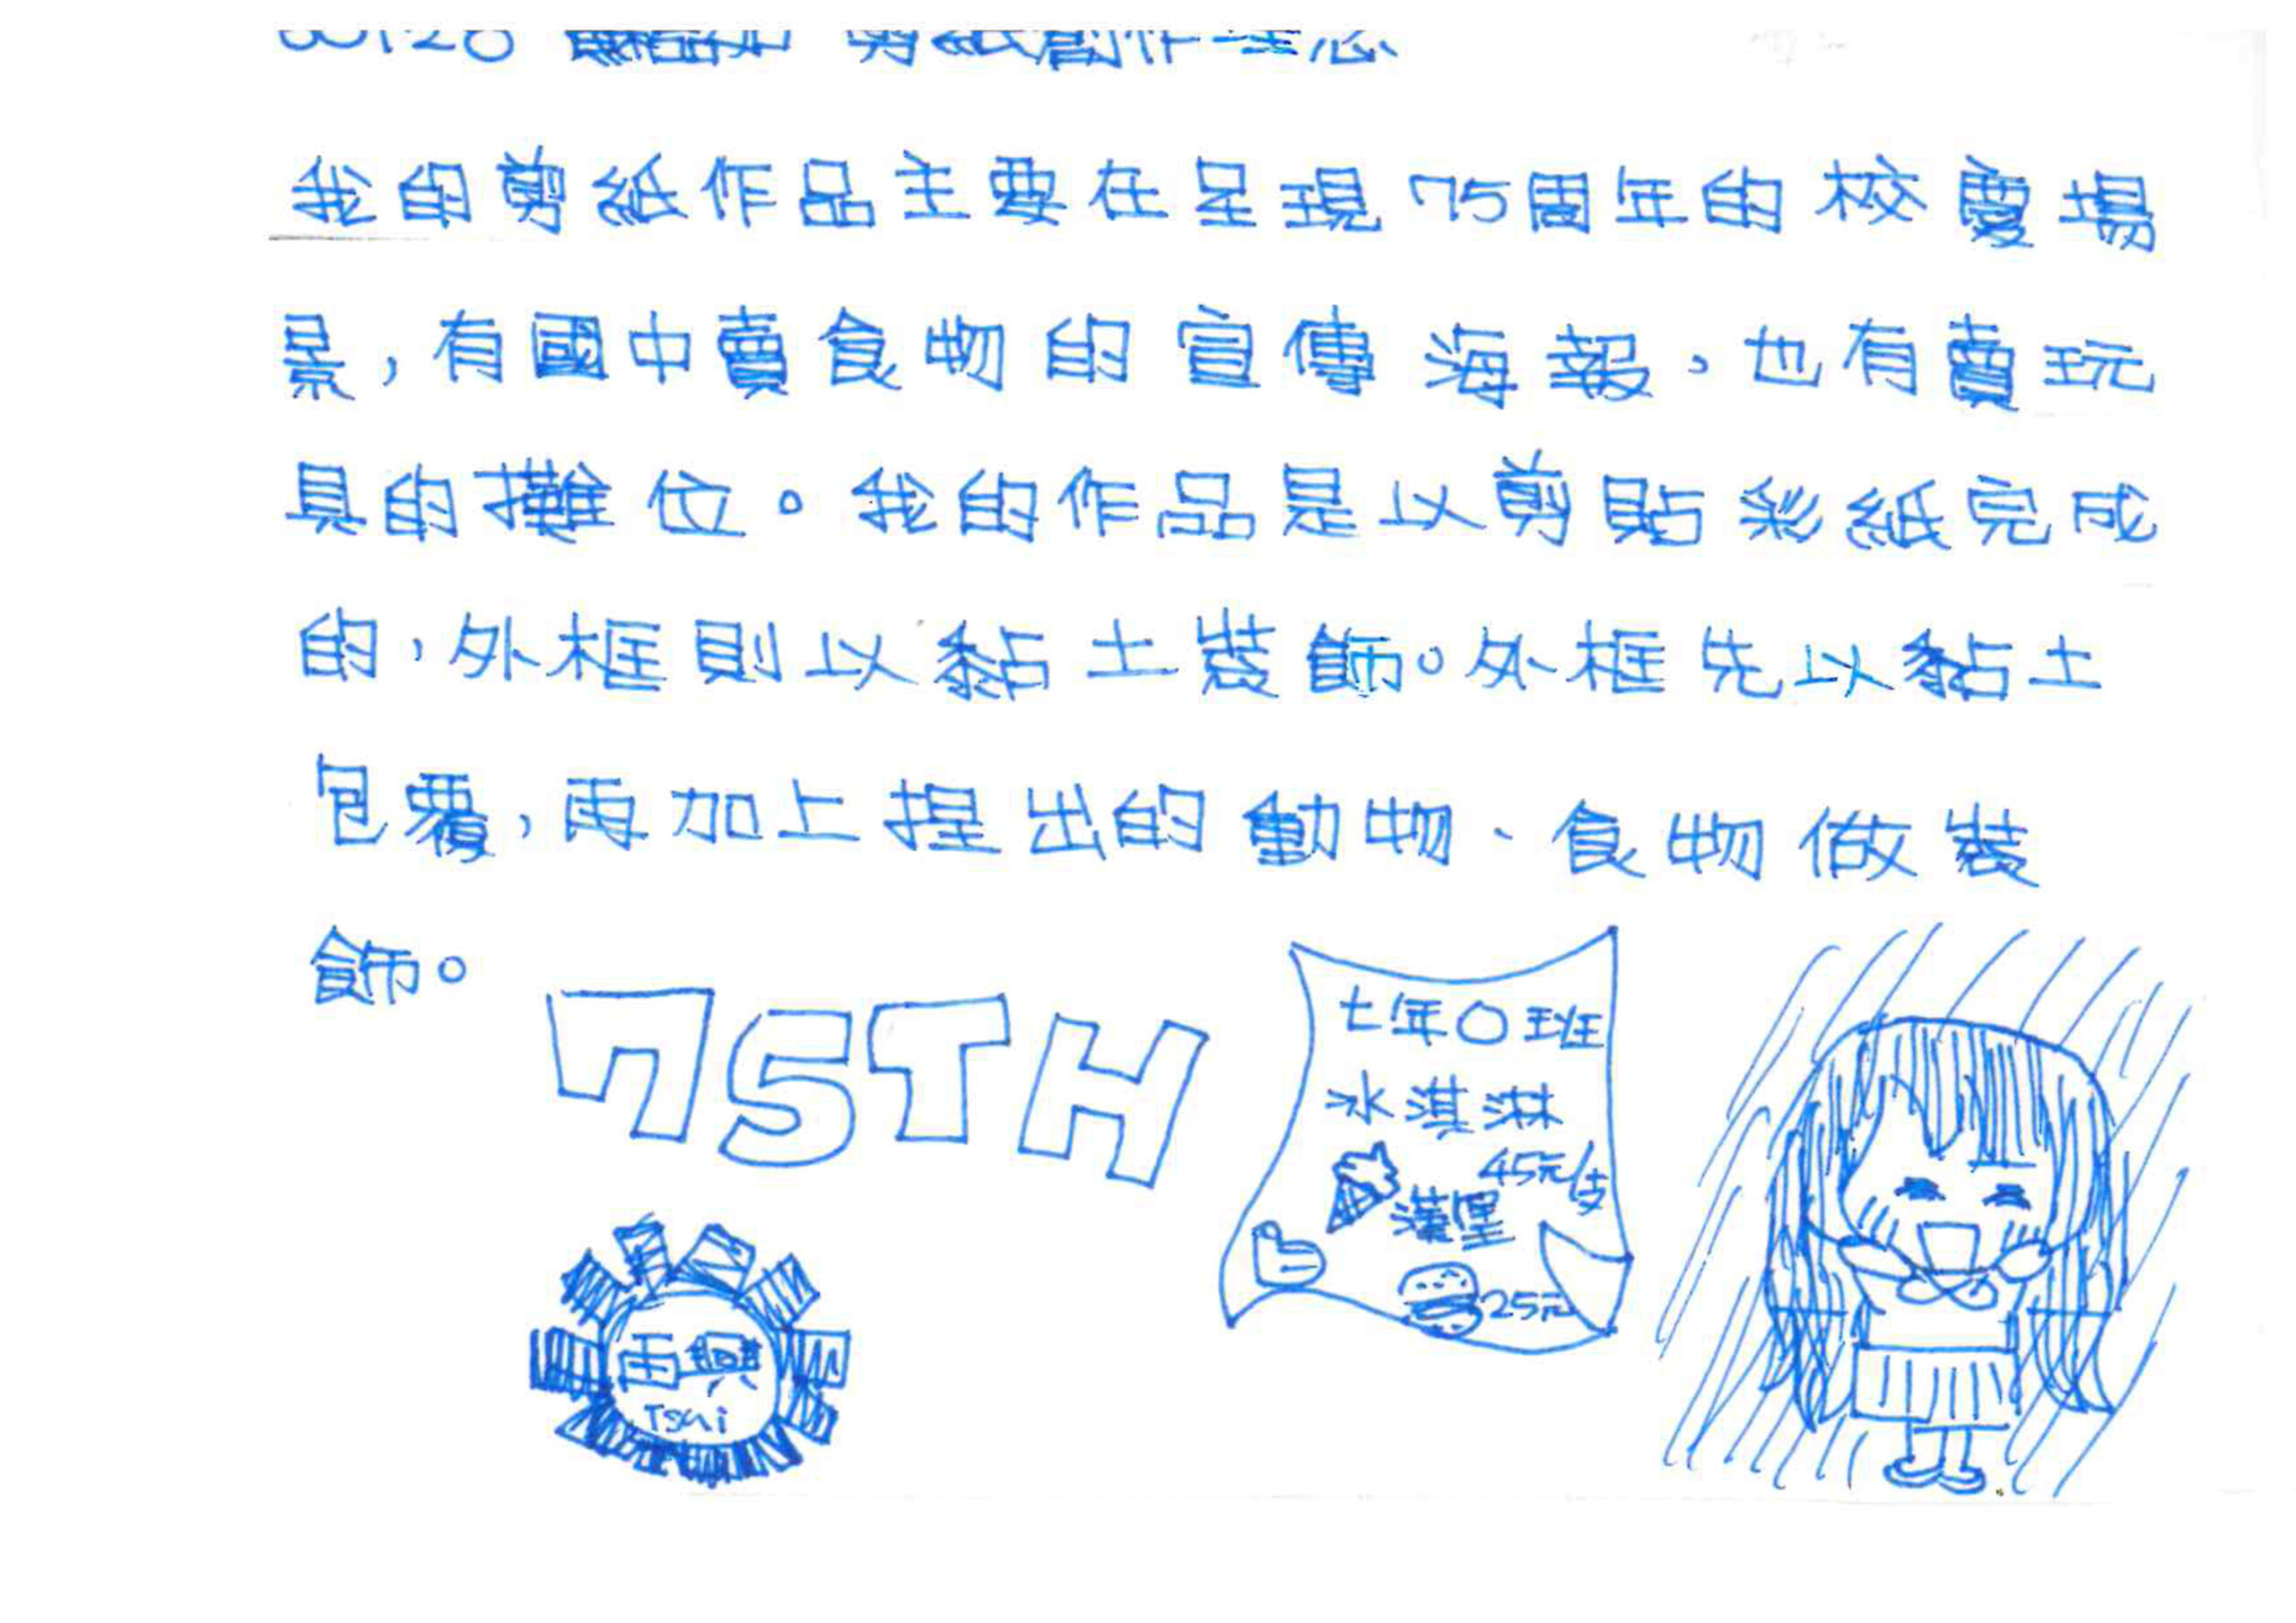 剪紙創作理念
我的剪紙作品主要在呈現75周年的校慶場
景，有國中賣食物的宣傳海報，也有賣玩
具的攤位。我的作品是以剪貼彩紙完成
的，外框則以黏土裝飾。外框先以黏土
包覆，再加上捏出的動物、食物做裝
飾。
75TH
七年〇班
冰淇淋
45元/支
漢堡
25元
再興
Tsai